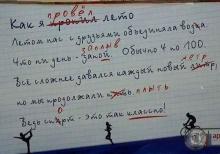 провёл
Как я пропил лето
Летом нас с друзьями объединяла водка.
заплыв
Что ни день - запой. Обычно 4 по 100.
метр
Всё сложнее давался каждый новый литр,
но мы продолжали пить плыть
о
Ведь спирт - это так классно!